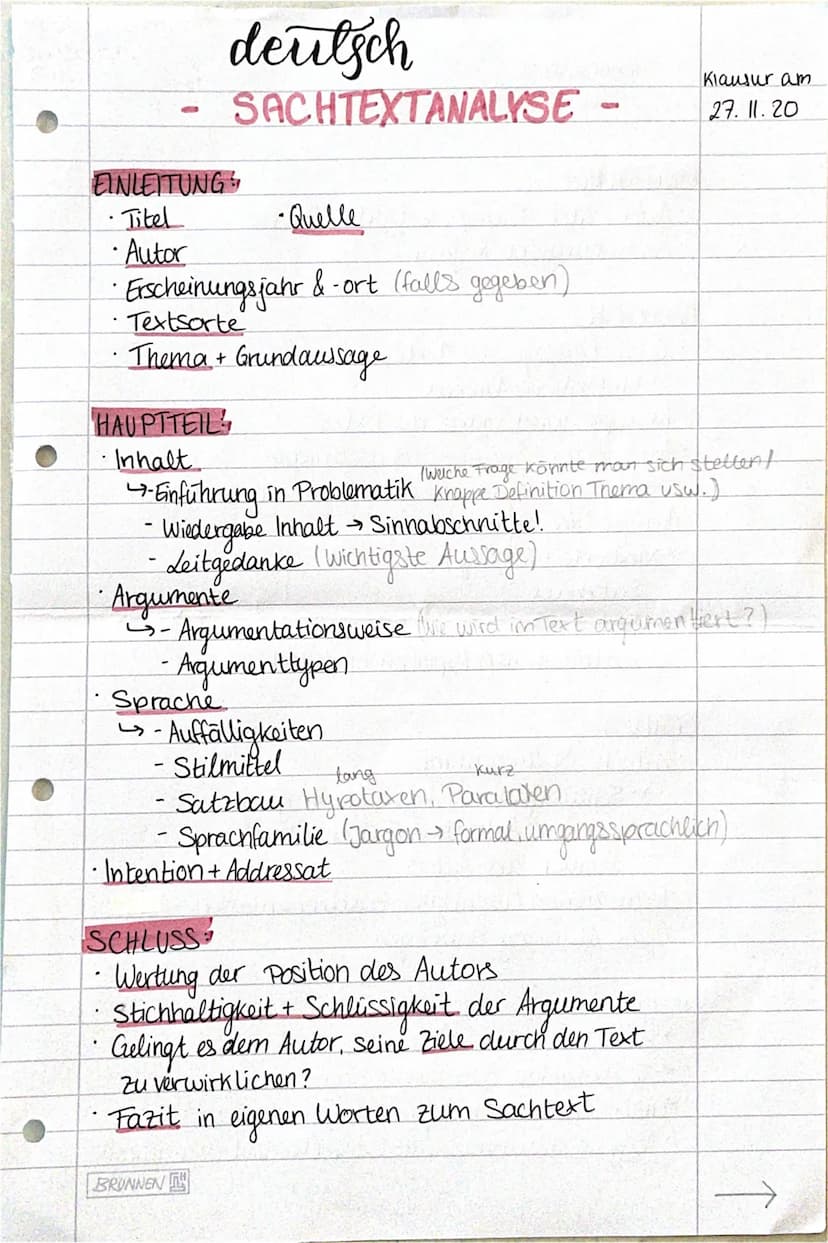 deutsch
- SACHTEXTANALYSE -
Klausur am
27.11.20
EINLEITUNG:
· Titel · Quelle
· Autor
· Erscheinungsjahr & -ort (falls gegeben)
· Textsorte
· Thema + Grundaussage
HAUPTTEIL:
· Inhalt
(Welche Frage könnte man sich stellen/
↳-Einführung in Problematik Knappe Definition Thema usw.)
- Wiedergabe Inhalt → Sinnabschnitte!
- Leitgedanke (wichtigste Aussage)
· Argumente
↳- Argumentationsweise (Wie wird im Text argumentiert?)
- Argumenttypen
· Sprache
↳ - Auffälligkeiten
- Stilmittel
lang kurz
- Satzbau Hypotaxen, Parataxen
- Sprachfamilie (Jargon → formal, umgangssprachlich)
· Intention + Addressat
SCHLUSS:
· Wertung der Position des Autors
· Stichhaltigkeit + Schlüssigkeit der Argumente
· Gelingt es dem Autor, seine Ziele durch den Text
zu verwirklichen?
· Fazit in eigenen Worten zum Sachtext
BRUNNEN
→